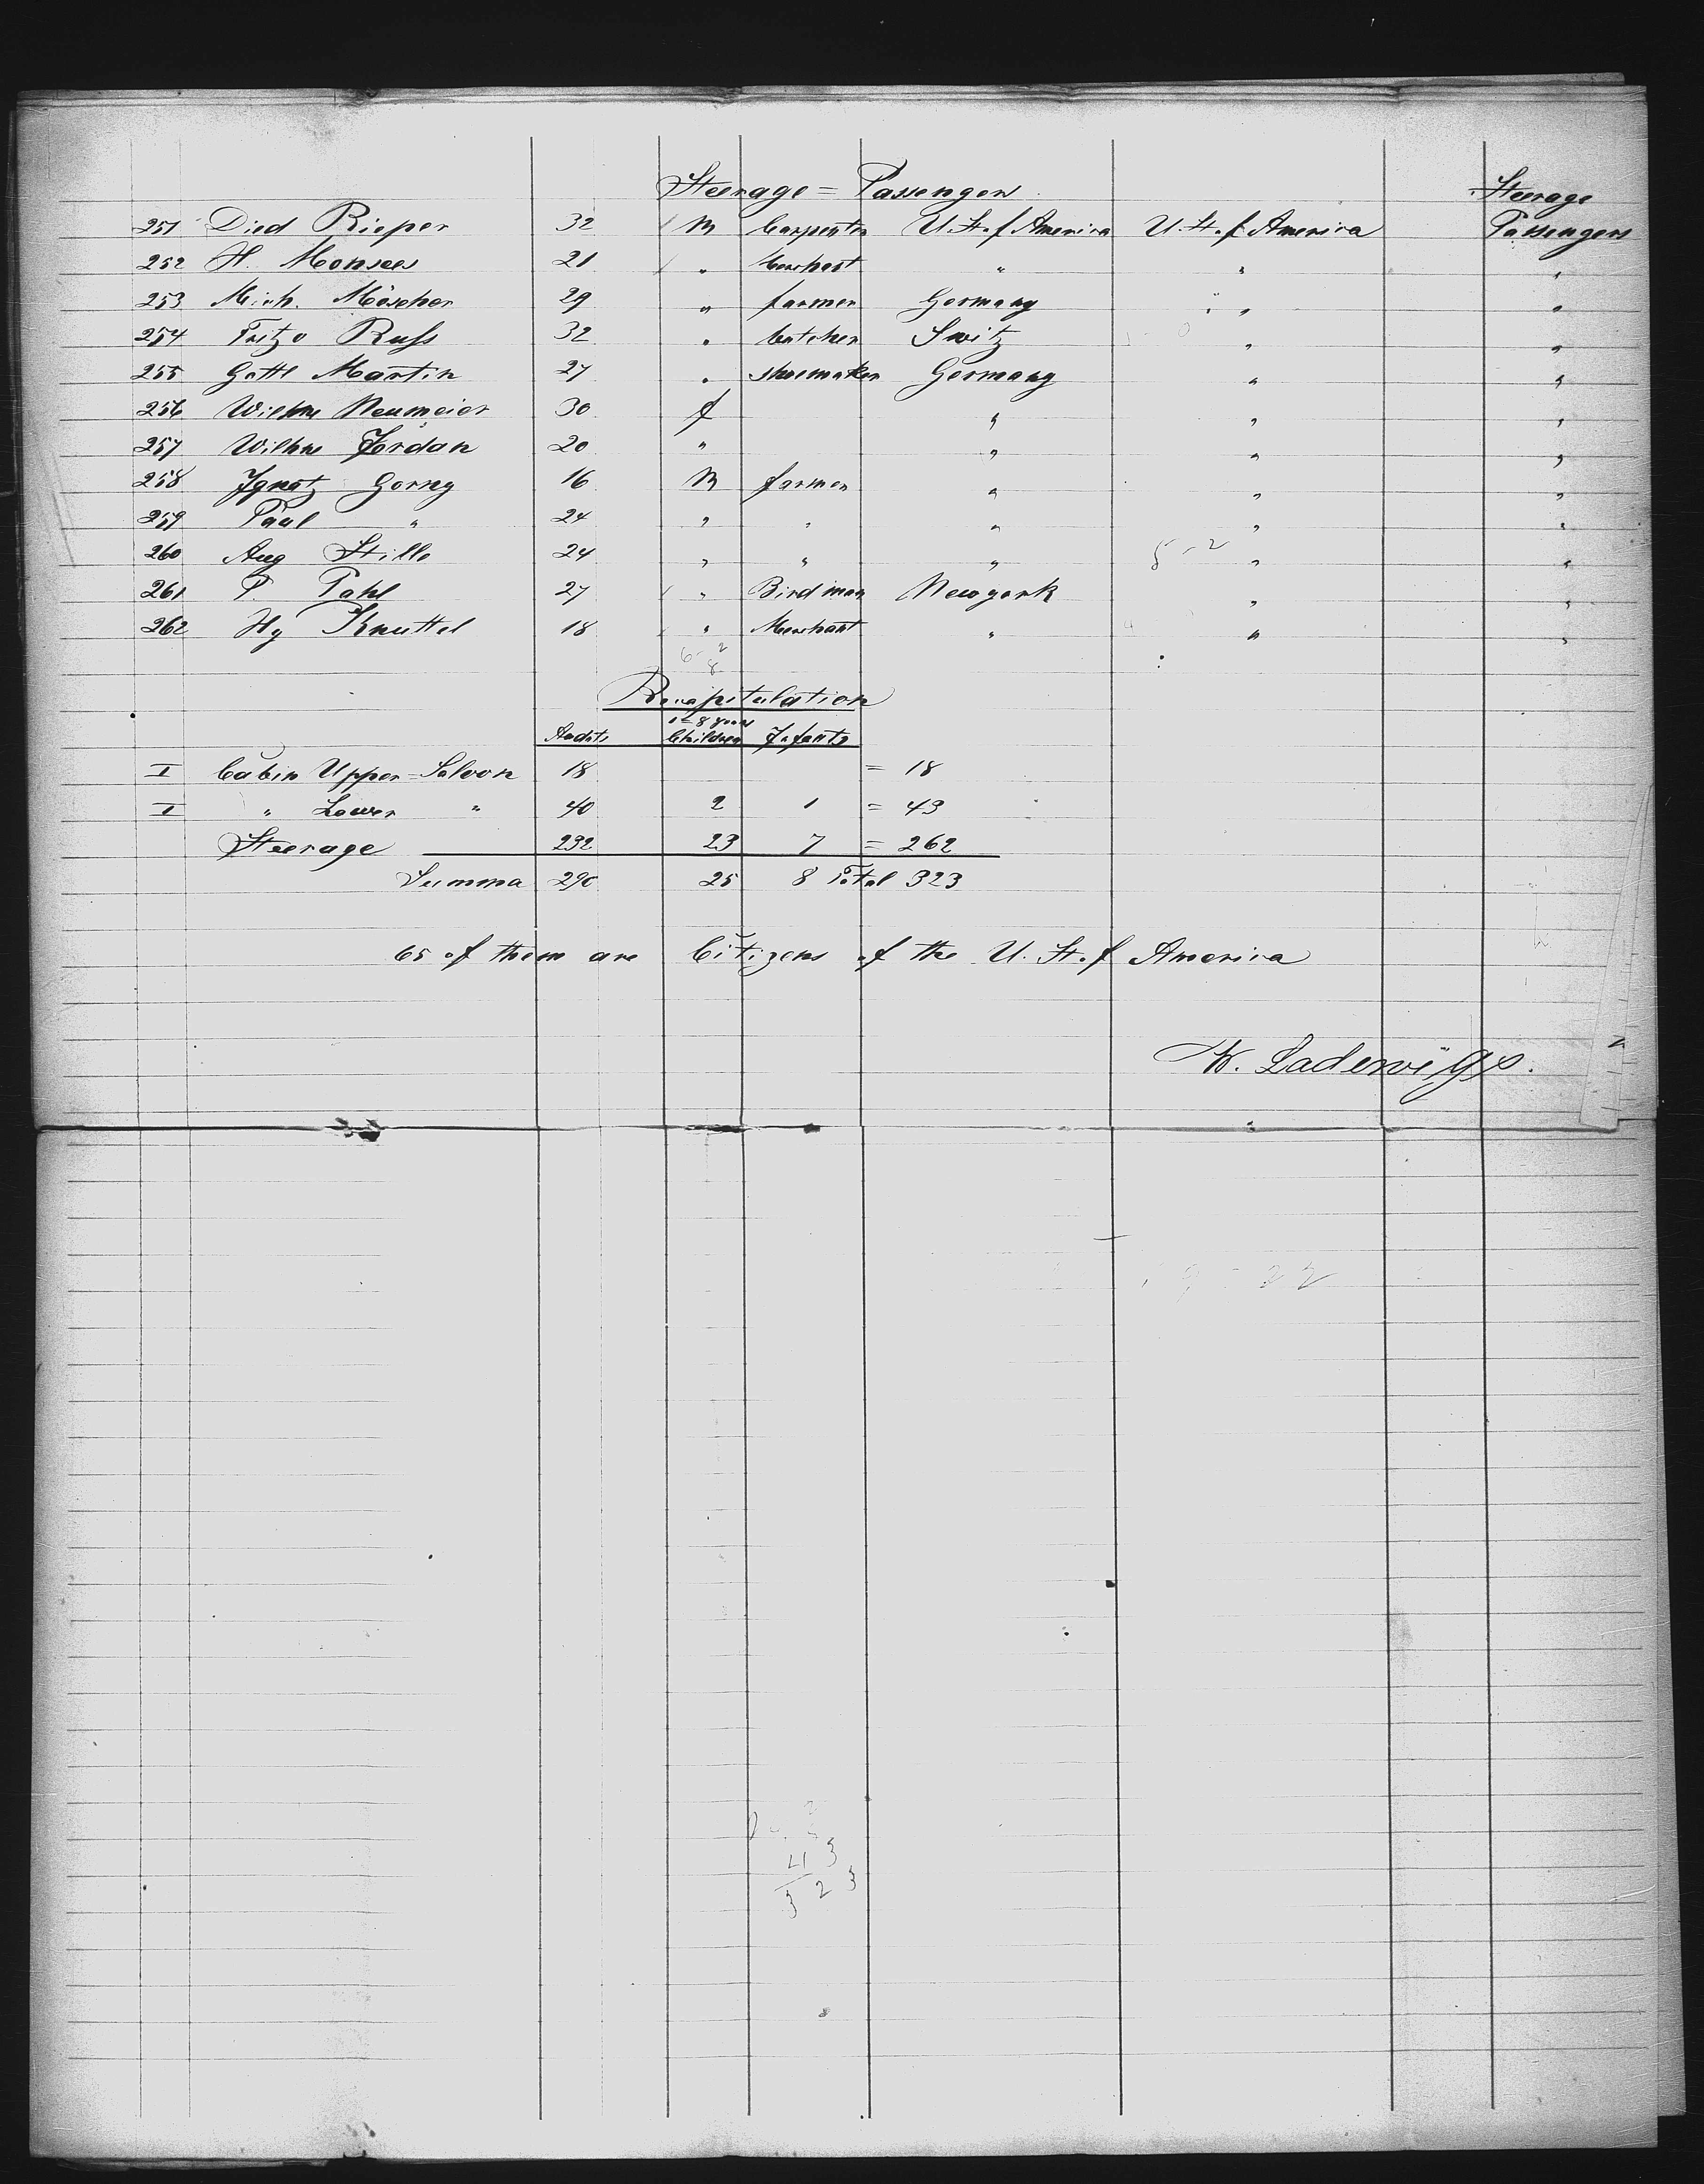 Steerage = Passengers
Steerage Passengers
251 Died Rieper 32 / M Carpenter U. St. of America U. St. of America
252 H. Monsees 21 / " Merchant " " "
253 Mich. Möscher 29 " farmer Germany " "
254 Fritz Russ 32 " butcher Switz " "
255 Gottl Martin 27 " shoemaker Germany " "
256 Wilhne Neumeier 30 f " " "
257 Wilhne Jordan 20 " " " "
258 Ignatz Gorny 16 M farmer " " "
259 Paul " 24 " " " " "
260 Aug Stille 24 " " " " "
261 P. Pahl 27 / " Birdman Newyork " "
262 Hy Knuttel 18 / " Merchant " " "
6 - 2
8
Recapitulation
1-8 years
Adults Children Infants
I Cabin Upper = Saloon 18 = 18
I " Lower " 40 2 1 = 43
Steerage 232 23 7 = 262
Summa 290 25 8 Total 323
65 of them are Citizens of the U. St. of America
W. Ladewigs.
3 2 3